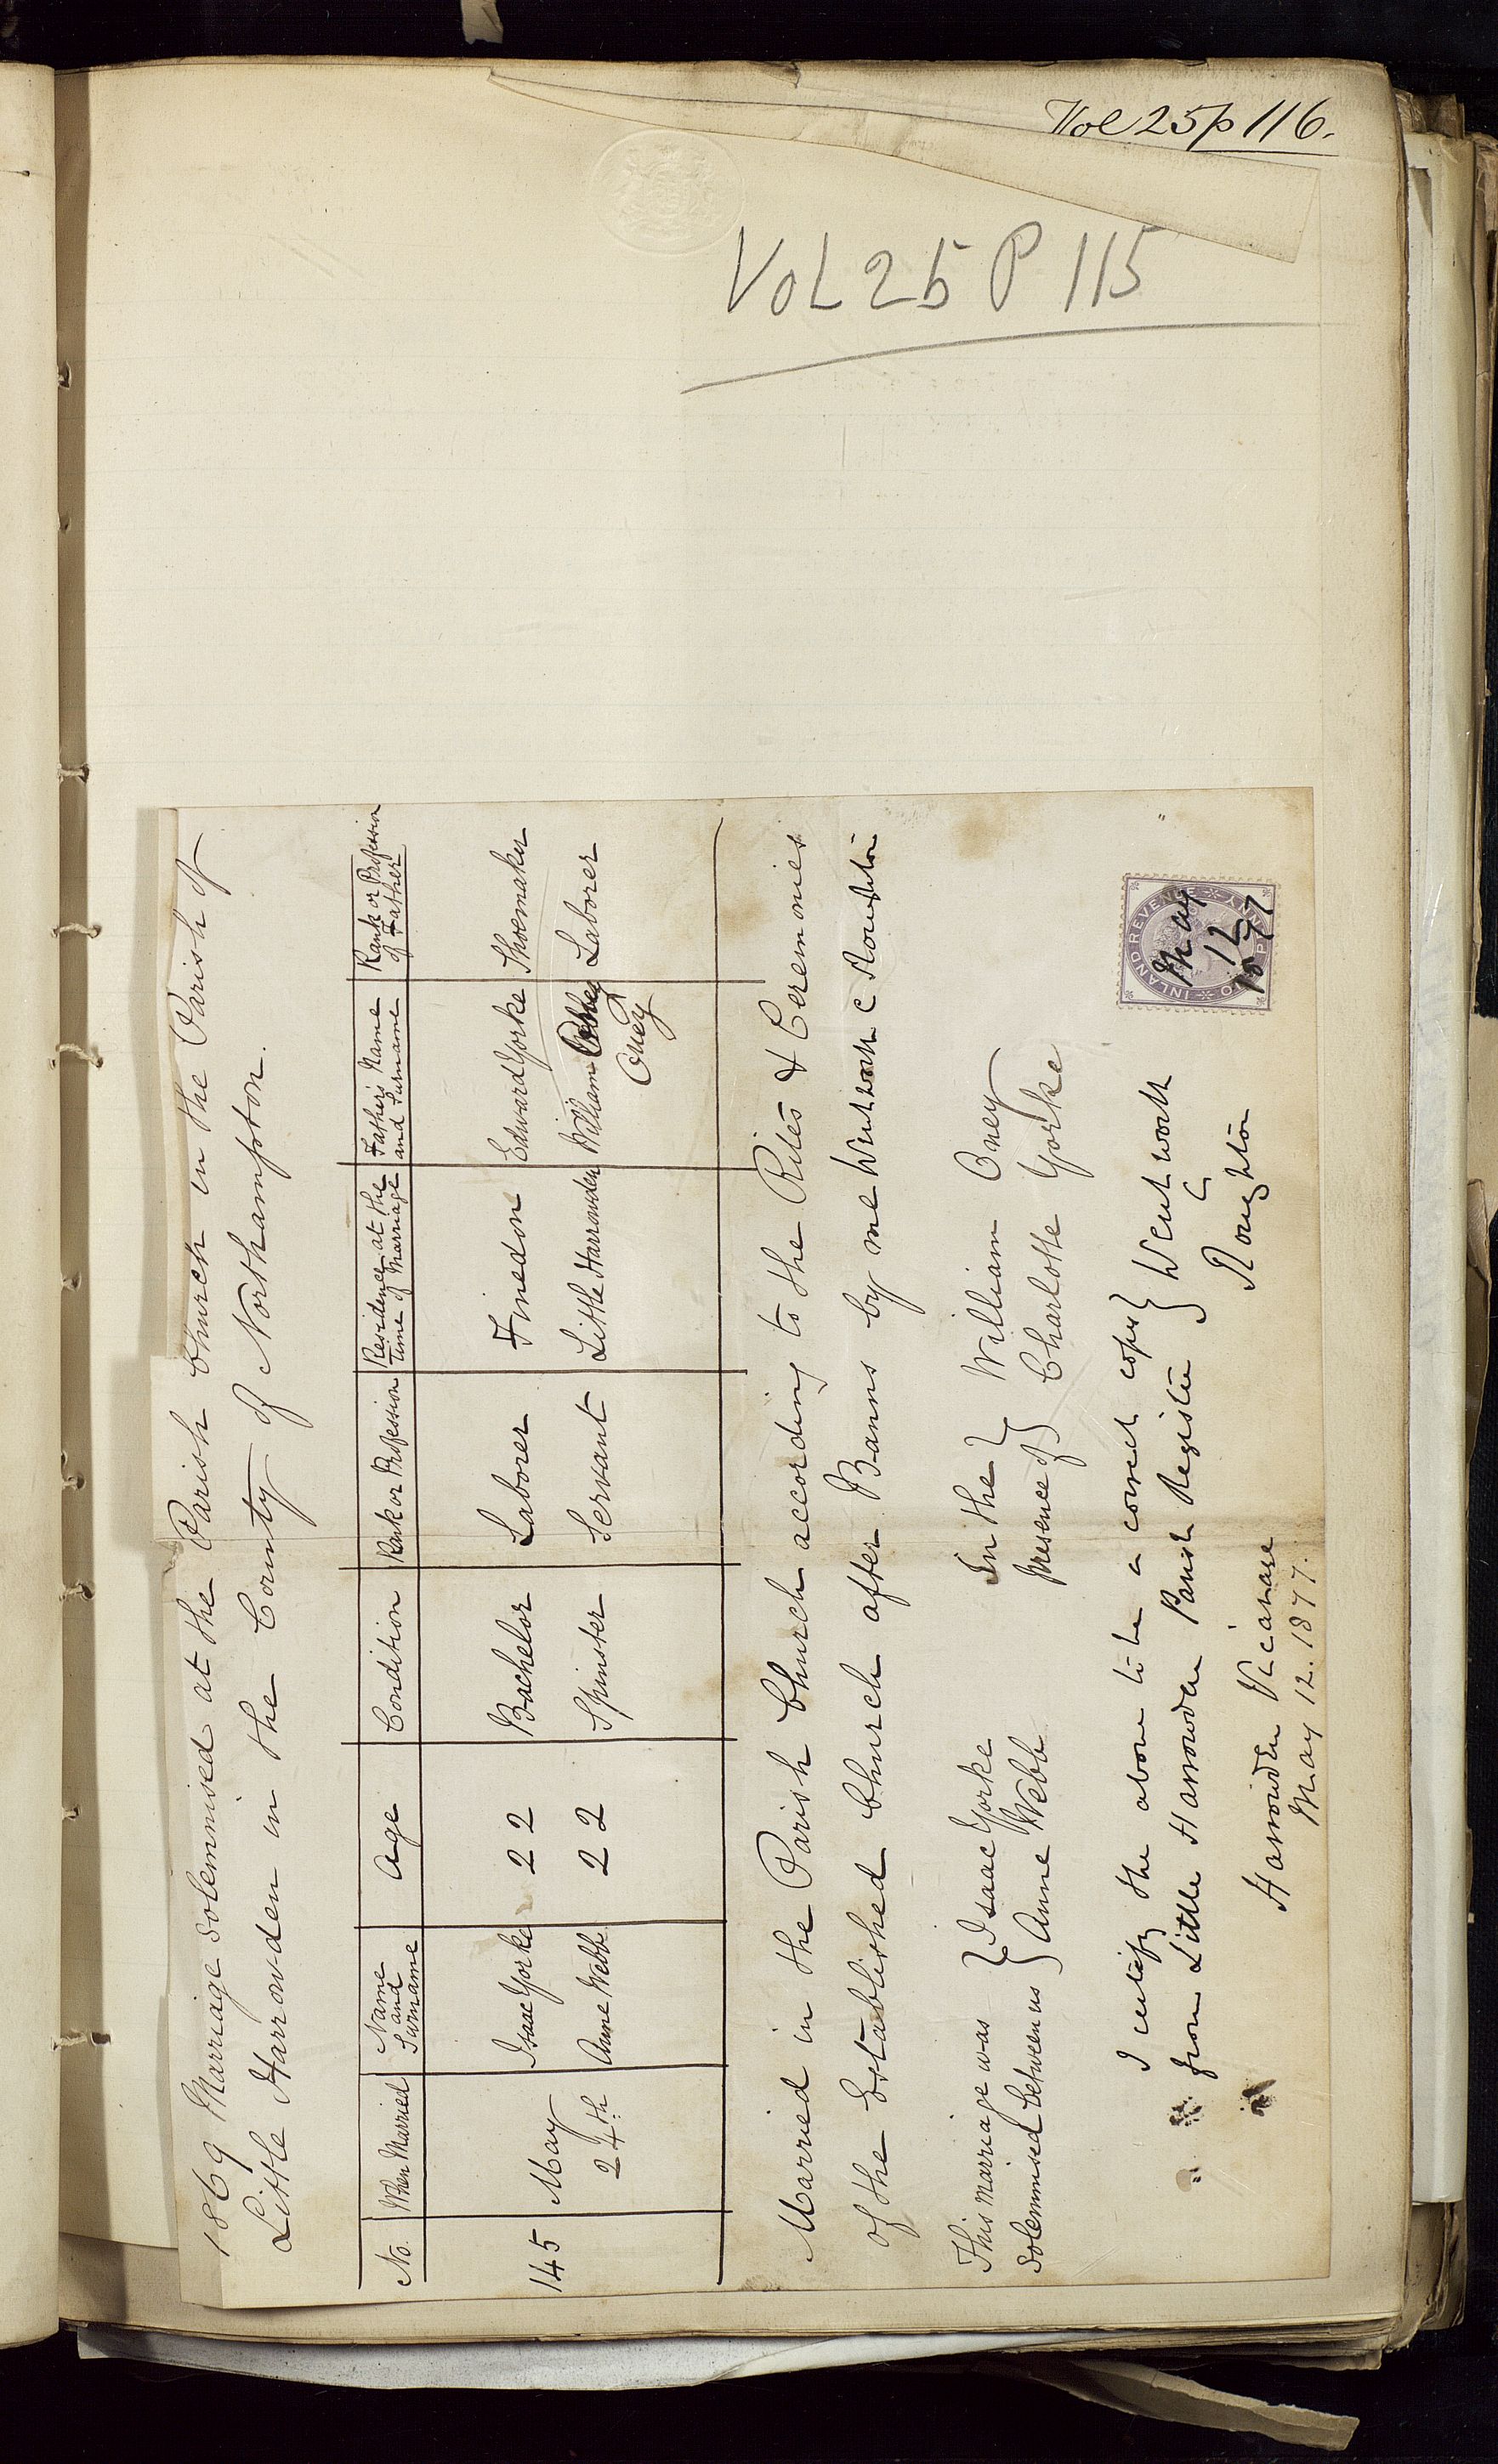 Vol 25 p 116.
VOL 25 P 115
1869 Marriage solemnised at the Parish Church in the Parish of
Little Harrowden in the County of Northampton.
No. | When Married | Name and Surname | Age | Condition | Rank or Profession | Residence at the time of Marriage | Father's Name and Surname | Rank or Profession of Father
145 | May 24th | Isaac Yorke | 22 | Bachelor | Laborer | Finedon | Edward Yorke | Shoemaker
Anne Webb | 22 | Spinster | Servant | Little Harrowden | William Oney | Laborer
Married in the Parish Church according to the Rites & Ceremonies
of the Established Church after Banns by me Wentworth C Roughton
This marriage was solemnised between us } Isaac Yorke Anne Webb
In the presence of } William Oney Charlotte Yorke
I certify the above to be a correct copy
from Little Harrowden Parish Register } Wentworth C Roughton
Harrowden Vicarage
May 12. 1877.
INLAND REVENUE
PENNY
May
12
77